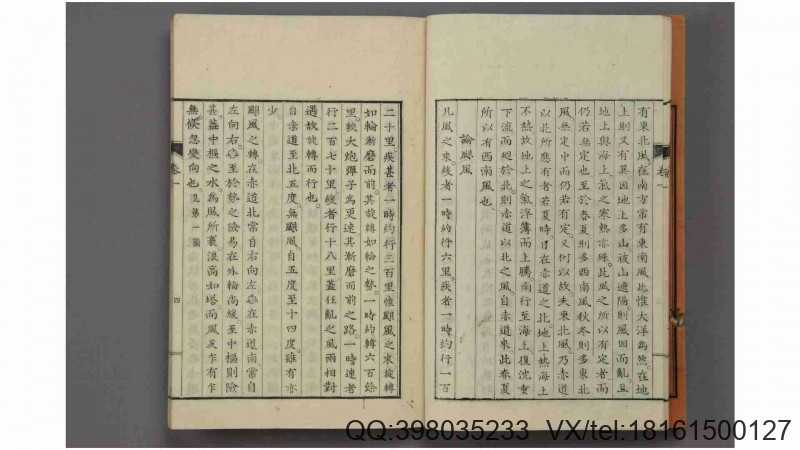 有東北風在南方常有東南風此惟大洋爲然在地
上則又有異因地上多山被山遮陽則風因而亂且
地上與海上氣之寒熱亦殊此風之所以有定者而
仍若無定也至於春夏則多西南風秋冬則多東北
風無定中而仍若有定又何以故夫東北風乃赤道
以北所應有者若夏時日在赤道之北地上熱海上
不熱故地上之氣浮薄而上騰南行至海上復沈重
下流而趨於北則赤道以北之風自赤道來此春夏
所以有西南風也
論颶風
凡風之來緩者一時約行六里疾者一時約行一百
二十里疾甚者一時約行三百里惟颶風之來旋轉
如輪漸磨而前其旋轉如輪之勢一時約轉六百餘
里較大炮彈子爲更速其漸磨而前之路一時速者
行二百七十里緩者行十八里蓋狂亂之風兩相對
遇故旋轉而行也
自赤道至北五度無颶風自五度至十四度雖有亦
少
颶風之轉在赤道北常自右向左在赤道南常自
左向右至於勢之險易在外輪尚緩至中樞則險
甚蓋中樞之水爲風所裹浪高如塔而風又乍有乍
無倏忽變向也見第一圖
卷一
四
QQ:398035233 VX/tel:18161500127